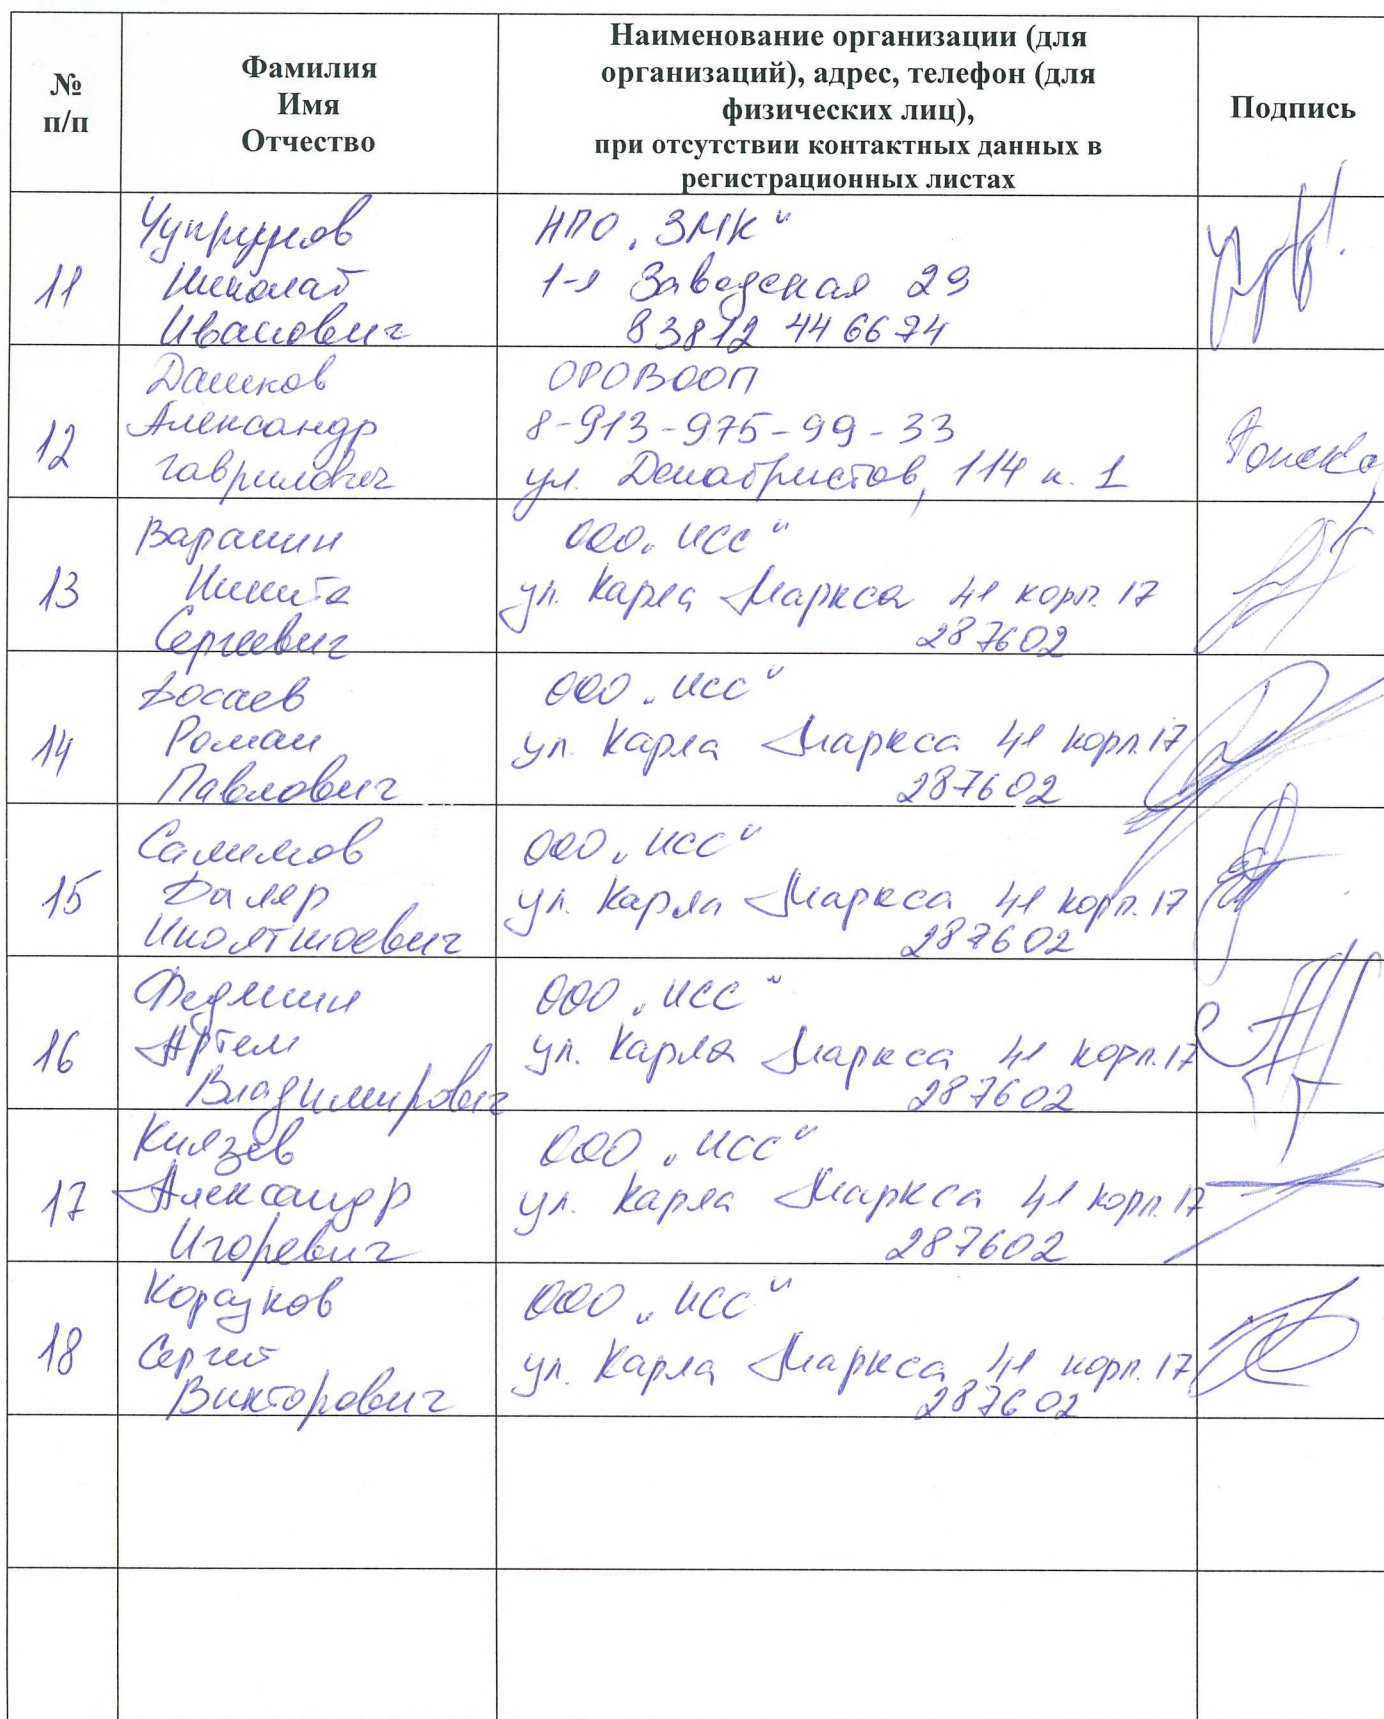 №
п/п
Фамилия
Имя
Отчество
Наименование организации (для
организаций), адрес, телефон (для
физических лиц),
при отсутствии контактных данных в
регистрационных листах
Подпись
11
Чупрунов
Николай
Иванович
НПО „ЗМК“
1-я Заводская 29
83812 44 66 74
12
Дашков
Александр
Гаврилович
ОРОВООП
8-913-975-99-33
ул. Декабристов, 114 к. 1
13
Варанин
Никита
Сергеевич
ООО „ИСС“
ул. Карла Маркса 41 корп. 17
287602
14
Босаев
Роман
Павлович
ООО „ИСС“
ул. Карла Маркса 41 корп. 17
287602
15
Салимов
Далер
ООО „ИСС“
ул. Карла Маркса 41 корп. 17
287602
16
Артем
Владимирович
ООО „ИСС“
ул. Карла Маркса 41 корп. 17
287602
17
Князев
Александр
Игоревич
ООО „ИСС“
ул. Карла Маркса 41 корп. 17
287602
18
Сергей
Викторович
ООО „ИСС“
ул. Карла Маркса 41 корп. 17
287602